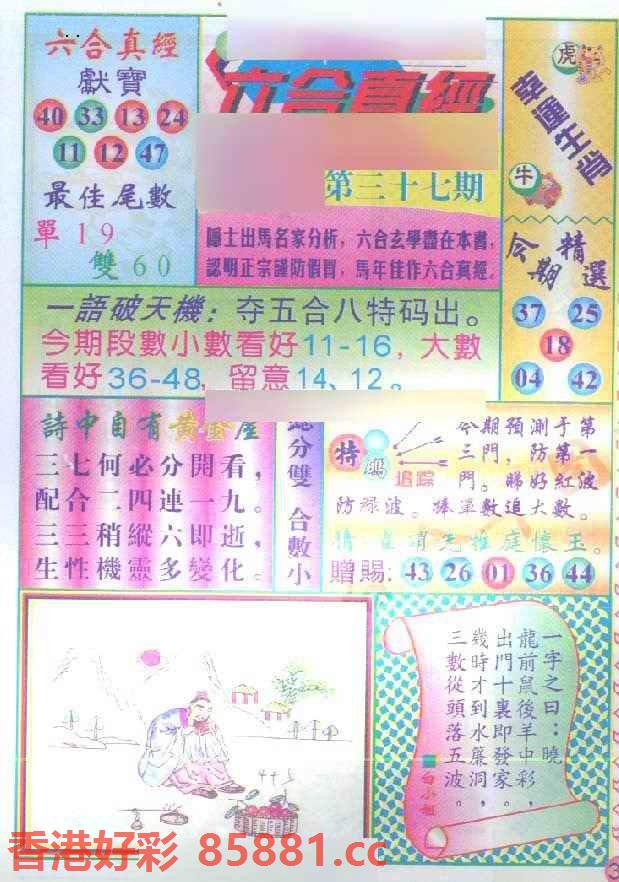 六合真經
獻寶
40 33 13 24
11 12 47
最佳尾數
單19
雙60
六合真經
第三十七期
隱士出馬名家分析，六合玄學盡在本書，
認明正宗謹防假冒，馬年佳作六合真經。
虎
幸運生肖
牛
今期精選
37 25
18
04 42
一語破天機：夺五合八特码出。
今期段數小數看好11-16，大數
看好36-48，留意14、12。
詩中自有黃金屋
三七何必分開看，
配合二四連一九。
三三稍縱六即逝，
生性機靈多變化。
分雙
合數小
特碼
追踪
今期預測于第
三門，防第一
門。睇好紅波
防绿波。捧單數追大數。
贈賜：43 26 01 36 44
一字之曰：曉
龍前鼠後羊中彩，
出門十裏即發家。
幾時才到水簾洞，
三數從頭落五波。
白小姐
4+5
香港好彩 85881.cc
3